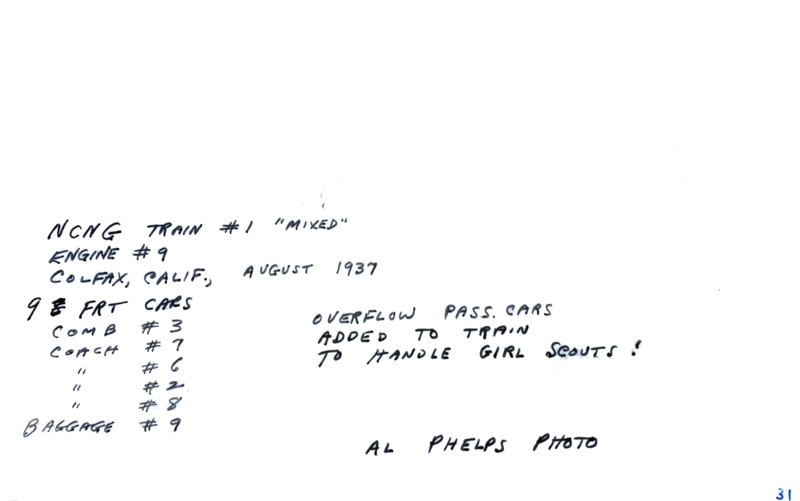 NCNG TRAIN #1 "MIXED"
ENGINE #9
COLFAX, CALIF., AUGUST 1937
9 FRT CARS
COMB #3
COACH #7
" #6
" #2
" #8
BAGGAGE #9
OVERFLOW PASS. CARS
ADDED TO TRAIN
TO HANDLE GIRL SCOUTS!
AL PHELPS PHOTO
31